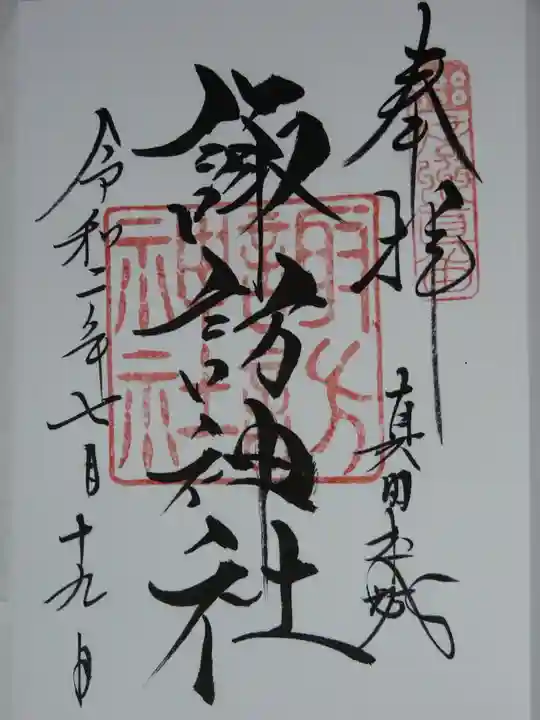 奉拝
真田本城
諏訪神社
令和二年七月十九日